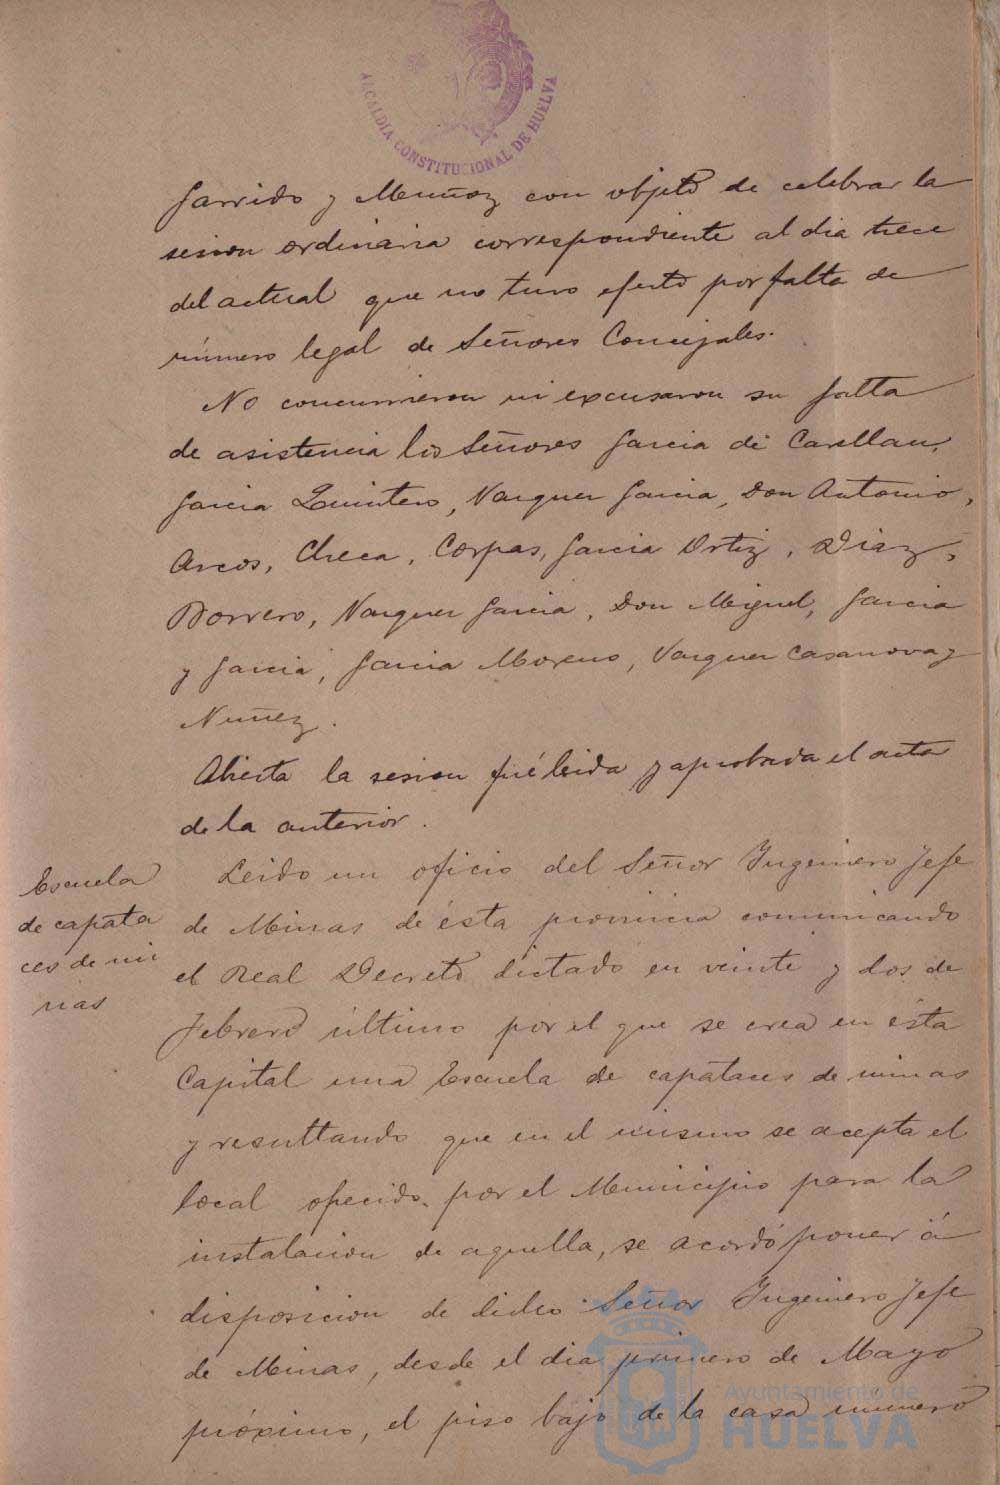 ALCALDIA CONSTITUCIONAL DE HUELVA
Garrido y Muñoz con objeto de celebrar la
sesion ordinaria correspondiente al dia trece
del actual que no tuvo efecto por falta de
número legal de Señores Concejales.
No concurrieron ni excusaron su falta
de asistencia los Señores Garcia de Castellan,
Garcia Quintero, Vazquez Garcia, Don Antonio,
Arcos, Checa, Corpas, Garcia Ortiz, Diaz,
Borrero, Vazquez Garcia, Don Miguel, Garcia
y Garcia, Garcia Moreno, Vazquez Casanova y
Nuñez.
Abierta la sesion fué leida y aprobada el acta
de la anterior.
Escuela
de capata
ces de mi
nas
Leido un oficio del Señor Ingeniero Jefe
de Minas de ésta provincia comunicando
el Real Decreto dictado en veinte y dos de
Febrero último por el que se crea en ésta
Capital una Escuela de capataces de minas
y resultando que en el mismo se acepta el
local ofrecido por el Municipio para la
instalacion de aquella, se acordó poner á
disposicion de dicho Señor Ingeniero Jefe
de Minas, desde el dia primero de Mayo
próximo, el piso bajo de la casa número
Ayuntamiento de
HUELVA